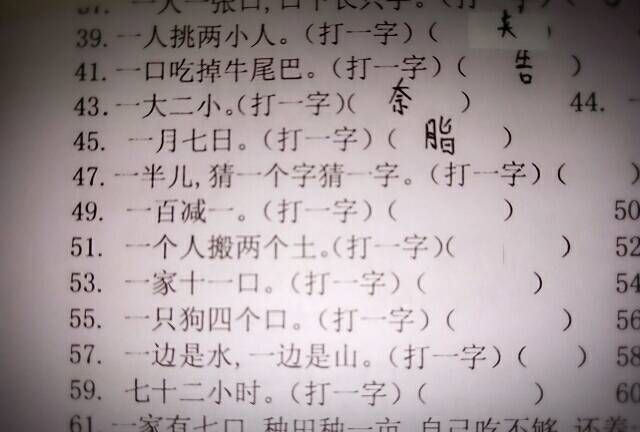 37. 一人一张口,口下长只手。(打一字)(
39. 一人挑两小人。(打一字)( 夹 )
41. 一口吃掉牛尾巴。(打一字)( 告 )
43. 一大二小。(打一字)( 奈 ) 44.
45. 一月七日。(打一字)( 脂 )
47. 一半儿,猜一个字猜一字。(打一字)( )
49. 一百减一。(打一字)( ) 50
51. 一个人搬两个土。(打一字)( ) 52
53. 一家十一口。(打一字)( ) 54
55. 一只狗四个口。(打一字)( ) 56
57. 一边是水,一边是山。(打一字)( ) 58
59. 七十二小时。(打一字)( ) 60
61. 一家有七口,种田种一亩,自己吃不够,还养